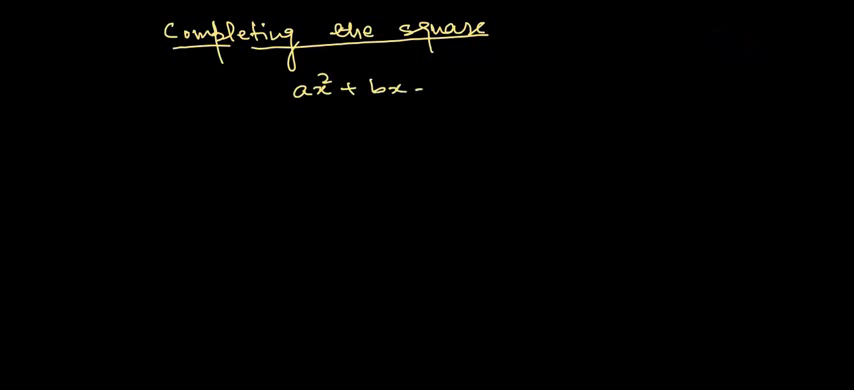 Completing the square
ax² + bx -